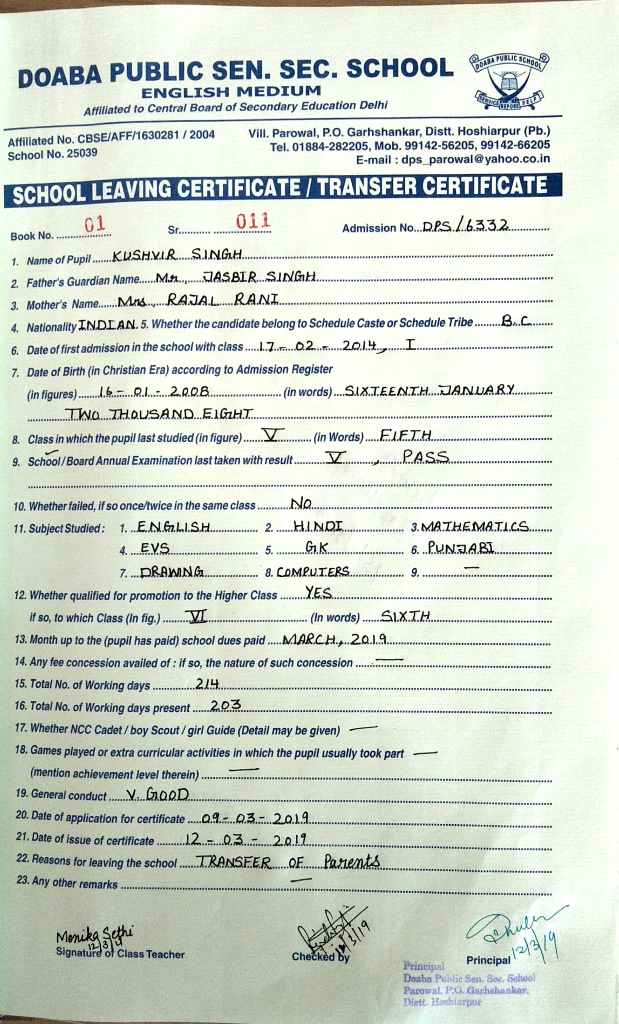 DOABA PUBLIC SEN. SEC. SCHOOL
ENGLISH MEDIUM
Affiliated to Central Board of Secondary Education Delhi
DOABA PUBLIC SCHOOL
SERVICE BEFORE SELF
Affiliated No. CBSE/AFF/1630281 / 2004
School No. 25039
Vill. Parowal, P.O. Garhshankar, Distt. Hoshiarpur (Pb.)
Tel. 01884-282205, Mob. 99142-56205, 99142-66205
E-mail : dps_parowal@yahoo.co.in
SCHOOL LEAVING CERTIFICATE / TRANSFER CERTIFICATE
Book No. 01 Sr. 011 Admission No. DPS/6332
1. Name of Pupil KUSHVIR SINGH
2. Father's Guardian Name Mr. JASBIR SINGH
3. Mother's Name Mrs. RAJAL RANI
4. Nationality INDIAN. 5. Whether the candidate belong to Schedule Caste or Schedule Tribe B.C
6. Date of first admission in the school with class 17-02-2014, I
7. Date of Birth (in Christian Era) according to Admission Register
(in figures) 16-01-2008 (in words) SIXTEENTH JANUARY
TWO THOUSAND EIGHT
8. Class in which the pupil last studied (in figure) V (in Words) FIFTH
9. School / Board Annual Examination last taken with result V, PASS
10. Whether failed, if so once/twice in the same class NO
11. Subject Studied : 1. ENGLISH 2. HINDI 3. MATHEMATICS
4. EVS 5. GK 6. PUNJABI
7. DRAWING 8. COMPUTERS 9. —
12. Whether qualified for promotion to the Higher Class YES
if so, to which Class (In fig.) VI (In words) SIXTH
13. Month up to the (pupil has paid) school dues paid MARCH, 2019
14. Any fee concession availed of : if so, the nature of such concession —
15. Total No. of Working days 214
16. Total No. of Working days present 203
17. Whether NCC Cadet / boy Scout / girl Guide (Detail may be given) —
18. Games played or extra curricular activities in which the pupil usually took part —
(mention achievement level therein) —
19. General conduct V. GOOD
20. Date of application for certificate 09-03-2019
21. Date of issue of certificate 12-03-2019
22. Reasons for leaving the school TRANSFER OF Parents
23. Any other remarks —
Monika Sethi
12/3/19 12/3/19 12/3/19
Signature of Class Teacher Checked by Principal
Principal
Doaba Public Sen. Sec. School
Parowal, P.O. Garhshankar,
Distt. Hoshiarpur